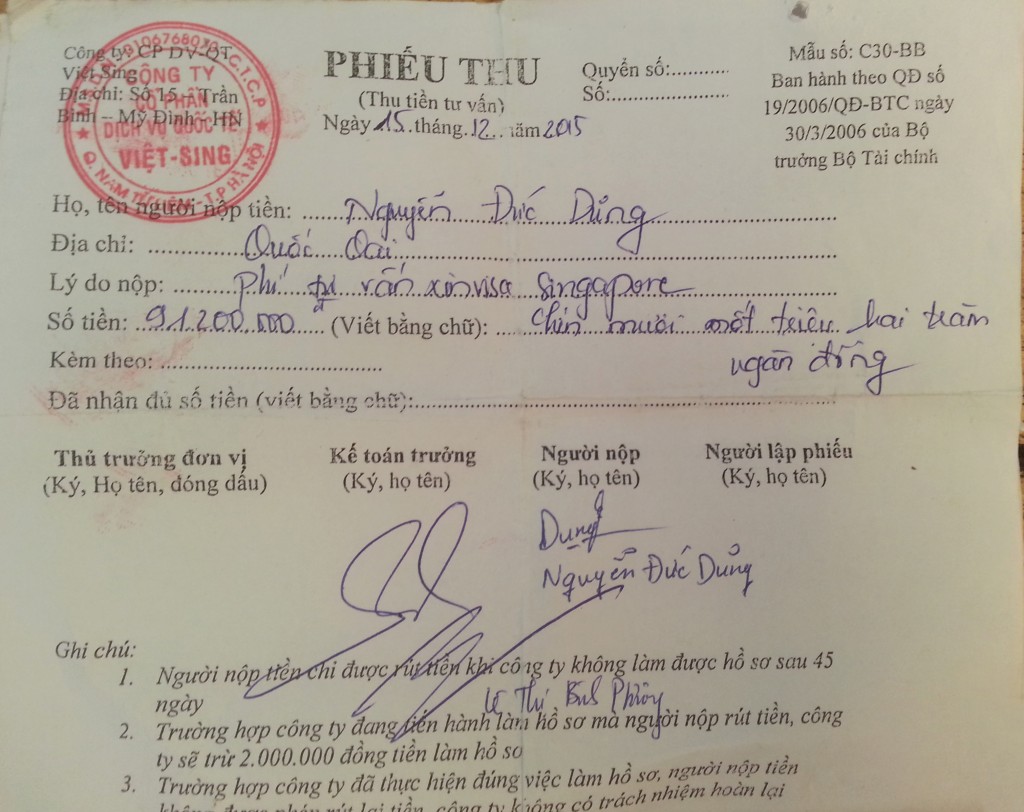 Công ty: CP DV-QT
Việt Sing
Địa chỉ: Số 15 – Trần
Bình – Mỹ Đình – HN
CÔNG TY
CỔ PHẦN
DỊCH VỤ QUỐC TẾ
VIỆT-SING
Q. NAM TỪ LIÊM - T.P HÀ NỘI
PHIẾU THU
(Thu tiền tư vấn)
Ngày 15 tháng 12 năm 2015
Quyển số:...........
Số:.....................
Mẫu số: C30-BB
Ban hành theo QĐ số
19/2006/QĐ-BTC ngày
30/3/2006 của Bộ
trưởng Bộ Tài chính
Họ, tên người nộp tiền: Nguyễn Đức Dũng
Địa chỉ: Quốc Oai
Lý do nộp: Phí tư vấn xin visa Singapore
Số tiền: 91.200.000 đ (Viết bằng chữ): Chín mươi mốt triệu hai trăm
ngàn đồng
Kèm theo:
Đã nhận đủ số tiền (viết bằng chữ):
Thủ trưởng đơn vị Kế toán trưởng Người nộp Người lập phiếu
(Ký, Họ tên, đóng dấu) (Ký, họ tên) (Ký, họ tên) (Ký, họ tên)
Dung
Nguyễn Đức Dũng
Ghi chú:
1. Người nộp tiền chỉ được rút tiền khi công ty không làm được hồ sơ sau 45
ngày
Lê Thị Phương
2. Trường hợp công ty đang tiến hành làm hồ sơ mà người nộp rút tiền, công
ty sẽ trừ 2.000.000 đồng tiền làm hồ sơ
3. Trường hợp công ty đã thực hiện đúng việc làm hồ sơ, người nộp tiền
không được phép rút lại tiền, công ty không có trách nhiệm hoàn lại